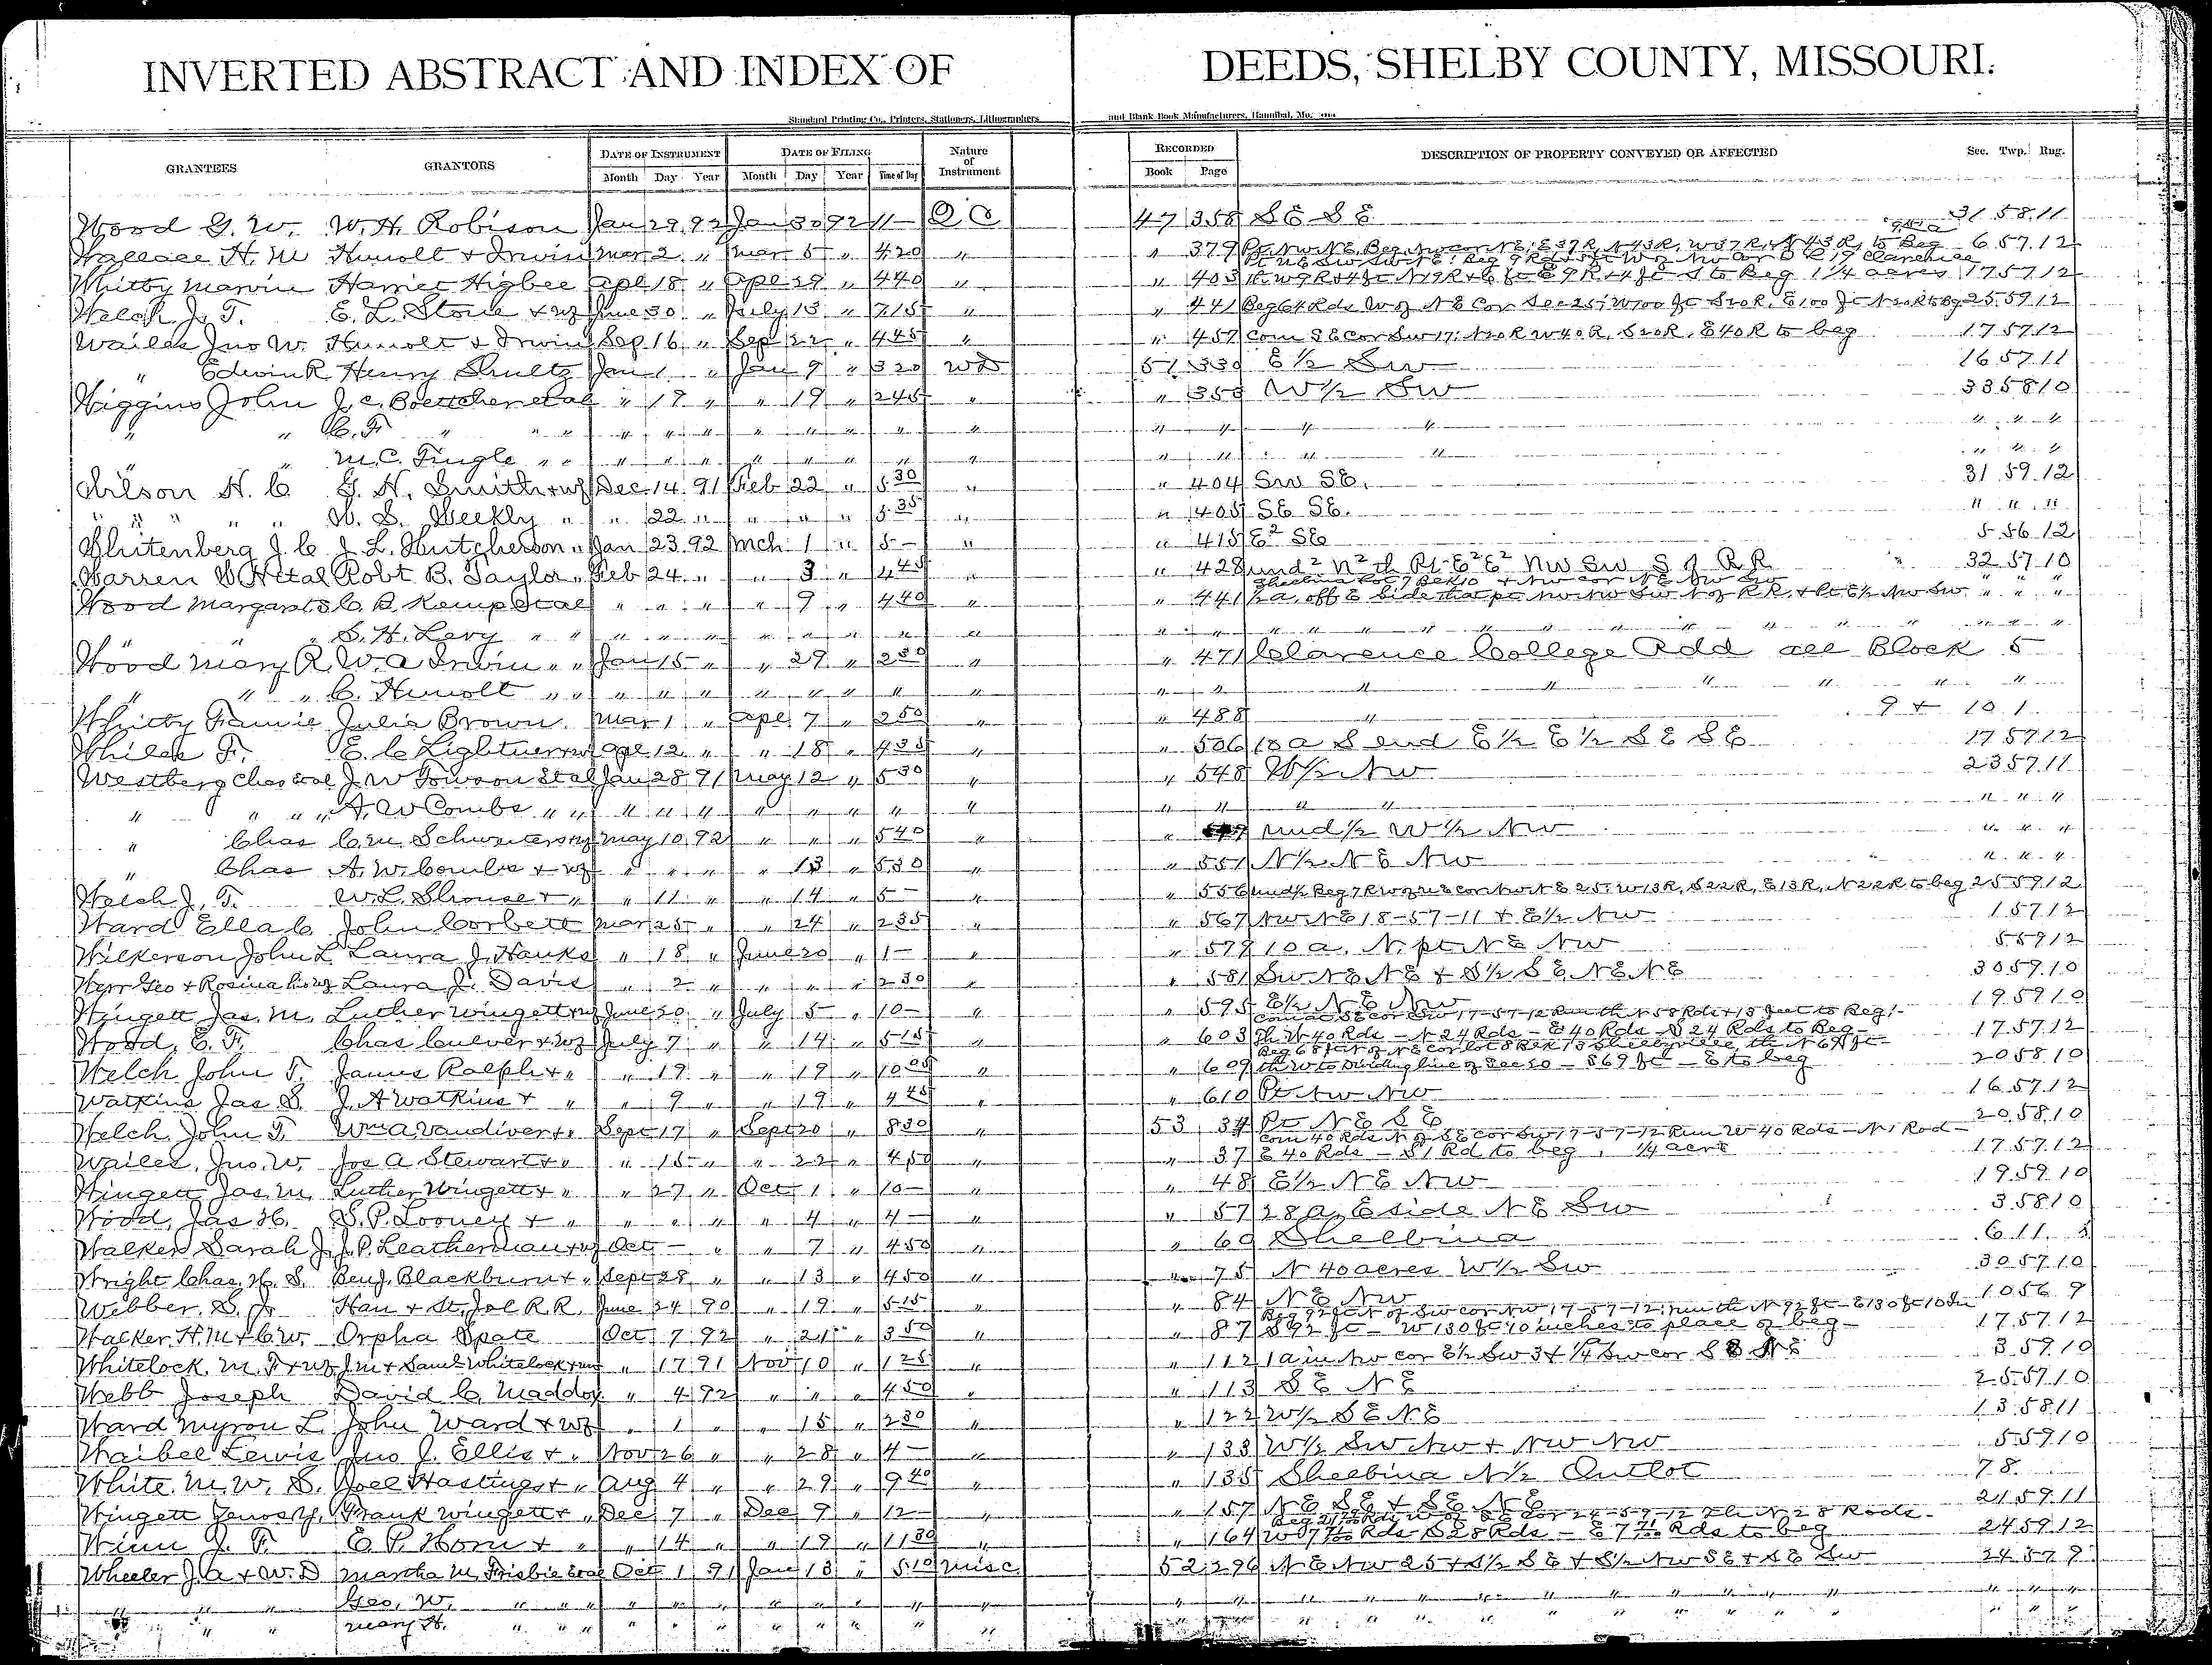 INVERTED ABSTRACT AND INDEX OF DEEDS, SHELBY COUNTY, MISSOURI.
Standard Printing Co., Printers, Stationers, Lithographers and Blank Book Manufacturers, Hannibal, Mo.
GRANTEES GRANTORS DATE OF INSTRUMENT DATE OF FILING Nature of Instrument RECORDED DESCRIPTION OF PROPERTY CONVEYED OR AFFECTED Sec. Twp. Rng.
Month Day Year Month Day Year Time of Day Book Page
Wood G. W. W. H. Robison Jan 29 92 Jan 30 92 11— Q C 47 358 S E S E 31 58 11
Wallace H. M Hunolt & Irwin Mar 2 " Mar 5 " 4 20 " " 379 Pt. Nw NE, Beg Nw cor NE, E 37 R, N 43 R, W 37 R, N 43 R, to Beg 6 57 12
Whitby Marvin Harriet Higbee Apl 18 " Apl 29 " 4 40 " " 403 th W 9 R & 4 ft N 19 R & 6 ft E 9 R & 4 ft S to Beg 1 1/4 acres 17 57 12
Welch J. T. E. L. Stone & wf June 30 " July 13 " 7 15 " " 441 Beg 64 Rds W of N E Cor Sec 25; W 100 ft S 20 R, E 100 ft N 20 R to Bg 25 59 12
Wailes Jno W. Hunolt & Irwin Sep 16 " Sep 22 " 4 45 " " 457 Com S E Cor Sw 17; N 20 R W 40 R, S 20 R, E 40 R to beg 17 57 12
" Edwin R Henry Shultz Jan 1 " Jan 9 " 3 20 W D 51 330 E 1/2 Sw 16 57 11
Wiggins John J. C. Boettcher et al " 19 " " 19 " 2 45 " " 353 W 1/2 Sw 33 58 10
" " C. F. " " " " " " " " " " " " " " " " " " "
" " M. C. Tingle " " " " " " " " " " " " " " " " "
Wilson H. C G. H. Smith & wf Dec 14 91 Feb 22 " 5 30 " " 404 Sw SE. 31 59 12
" " " " " W. S. Weekly " " 22 " " " " 5 35 " " 405 SE SE. " " "
Whitenberg J. C J. L. Hutcherson " Jan 23 92 Mch 1 " 5— " " 415 E 2 SE 5 56 12
Warren W H et al Robt B. Taylor " Feb 24 " " 3 " 4 45 " " 428 und 2 N 2 th Pt E 2 E 2 NW SW S of R R " 32 57 10
Shelbina Lot 7 Blk 10 & NW cor NE NW SW
Wood Margaret S C. B. Kemp et al " " " " 9 " 4 40 " " 441 off E Side that pt Nw Nw Sw N of R R, & Pt E 1/2 Nw Sw " " "
" " " S. H. Levy " " " " " " " " " " " " " " " " " " " " " " "
Wood Mary R W. A Irwin " " Jan 15 " " 29 " 2 50 " " 471 Clarence College Add all Block 5
" " " C. Hunolt " " " " " " " " " " " " " " " " " "
Whitby Fannie Julia Brown Mar 1 " Apl 7 " 2 50 " " 488 " 9 & 10 1
While F. E. C Lightner & wf Apl 12 " " 18 " 4 35 " " 506 10 a S end E 1/2 E 1/2 S E S E 17 57 12
Westberg Chas et al J. W Towson et al Jan 28 91 May 12 " 5 30 " " 548 W 1/2 Nw 23 57 11
" " " " A. W Combs " " " " " " " " " " " " " " " " "
" Chas C. M. Schwieters & wf May 10 92 " " " 5 40 " " und 1/2 W 1/2 Nw " " "
" Chas A. W. Combs & wf " " " " 13 " 5 30 " " 551 N 1/2 N E Nw " " "
Welch J. T. W. L. Shouse & " " 11 " " 14 " 5— " " 556 und 1/2 Beg 7 R W of NE cor Nw N E 25; W 13 R, S 22 R, E 13 R, N 22 R to beg 25 59 12
Ward Ella C John Corbett Mar 25 " " 24 " 2 35 " " 567 Nw NE 18-57-11 & E 1/2 Nw 1 57 12
Wilkerson John L Laura J. Hanks " 18 " June 20 " 1— " " 579 10 a. N. pt N E Nw 5 59 12
Werr Geo & Rosina his wf Laura J. Davis " 2 " " " " 2 30 " " 581 Sw N E N E & S 1/2 S E N E N E 30 59 10
Wingett Jas. M. Luther Wingett & wf June 20 " July 5 " 10— " " 595 E 1/2 N E Nw 19 59 10
Com at SE cor Sw 17-57-12 Run th N 58 Rds & 13 feet to Beg;
Wood, E. F. Chas Culver & wf July 7 " " 14 " 5 15 " " 603 Th W 40 Rds — N 24 Rds — E 40 Rds S 24 Rds to Beg— 17 57 12
Beg 68 ft N of N E cor lot 8 Blk 13 Shelbyville, th N 69 ft—
Welch John T. James Ralph & " " 19 " " 19 " 10 05 " " 609 th W to Dividing line of Sec 20 — S 69 ft — E to beg 20 58 10
Watkins Jas S. J. A Watkins & " " 9 " " 19 " 4 45 " " 610 Pt Nw Nw 16 57 12
Welch John T. Wm A. Vandiver & " Sept 17 " Sept 20 " 8 30 " 53 34 Pt N E S E 20 58 10
Com 40 Rds N of S E cor Sw 17-57-12 Run W 40 Rds — N 1 Rod—
Wailes, Jno. W. Jos A Stewart & " " 15 " " 22 " 4 50 " " 37 E 40 Rds — S 1 Rd to beg, 1/4 acre 17 57 12
Wingett Jas. M. Luther Wingett & " " 27 " Oct 1 " 10— " " 48 E 1/2 N E Nw 19 59 10
Wood, Jas H. S. P. Looney & " " " " " 4 " 4— " " 57 28 a. E side N E Sw 3 58 10
Walker Sarah J. J. P. Leatherman & wf Oct — " " 7 " 4 50 " " 69 Shelbina 6 11
Wright Chas. H. S. Benj. Blackburn & " Sept 28 " " 13 " 4 50 " " 75 N 40 acres W 1/2 Sw 30 57 10
Webber, S. Jr Han & St. Joe R. R. June 24 90 " 19 " 5 15 " " 84 N E Nw 10 56 9
Beg 92 ft N of Sw cor Nw 17-57-12; run th N 92 ft — E 130 ft 10 In
Walker H. M & C W. Orpha Spate Oct 7 92 " 21 " 3 50 " " 87 S 92 ft — W 130 ft 10 inches to place of beg— 17 57 12
Whitelock M. F & wf J. M & Saml Whitelock & wf " 17 91 Nov 10 " 1 25 " " 112 1 a in Nw cor E 1/2 Sw 3 & 1/4 Sw cor S E N E 3 59 10
Webb Joseph David C. Maddox " 4 92 " " " 4 50 " " 113 S E N E 25 57 10
Ward Myron L John Ward & wf " 1 " " 15 " 2 30 " " 122 W 1/2 S E N E 13 58 11
Waibel Lewis Jno J. Ellis & " Nov 26 " " 28 " 4— " " 133 W 1/2 Sw Nw & Nw Nw 5 59 10
White M. W. S. Joel Hastings & " Aug 4 " " 29 " 9 40 " " 135 Shelbina N 1/2 Outlot 78
Wingett Frank Wingett & " Dec 7 " Dec 9 " 12— " " 157 N E S E & S E N E 21 59 11
W of S E Cor 24-59-12 Th N 28 Rods—
Winn J. F. E. P. Horn & " " 14 " " 19 " 11 30 " " 164 W 7 Rds S 28 Rds — E 7 Rds to beg 24 59 12
Wheeler J. A & W. D Martha M. Frisbie et al Oct 1 91 Jan 13 " 5 10 Misc 52 296 N E Nw 25 & S 1/2 S E & S 1/2 Nw S E & S E Sw 24 57 9
" " " Geo. W. " " " " " " " " " " " " " " " " " " "
" " " Mary H. " " " " " " " " " " " " " " " " " "